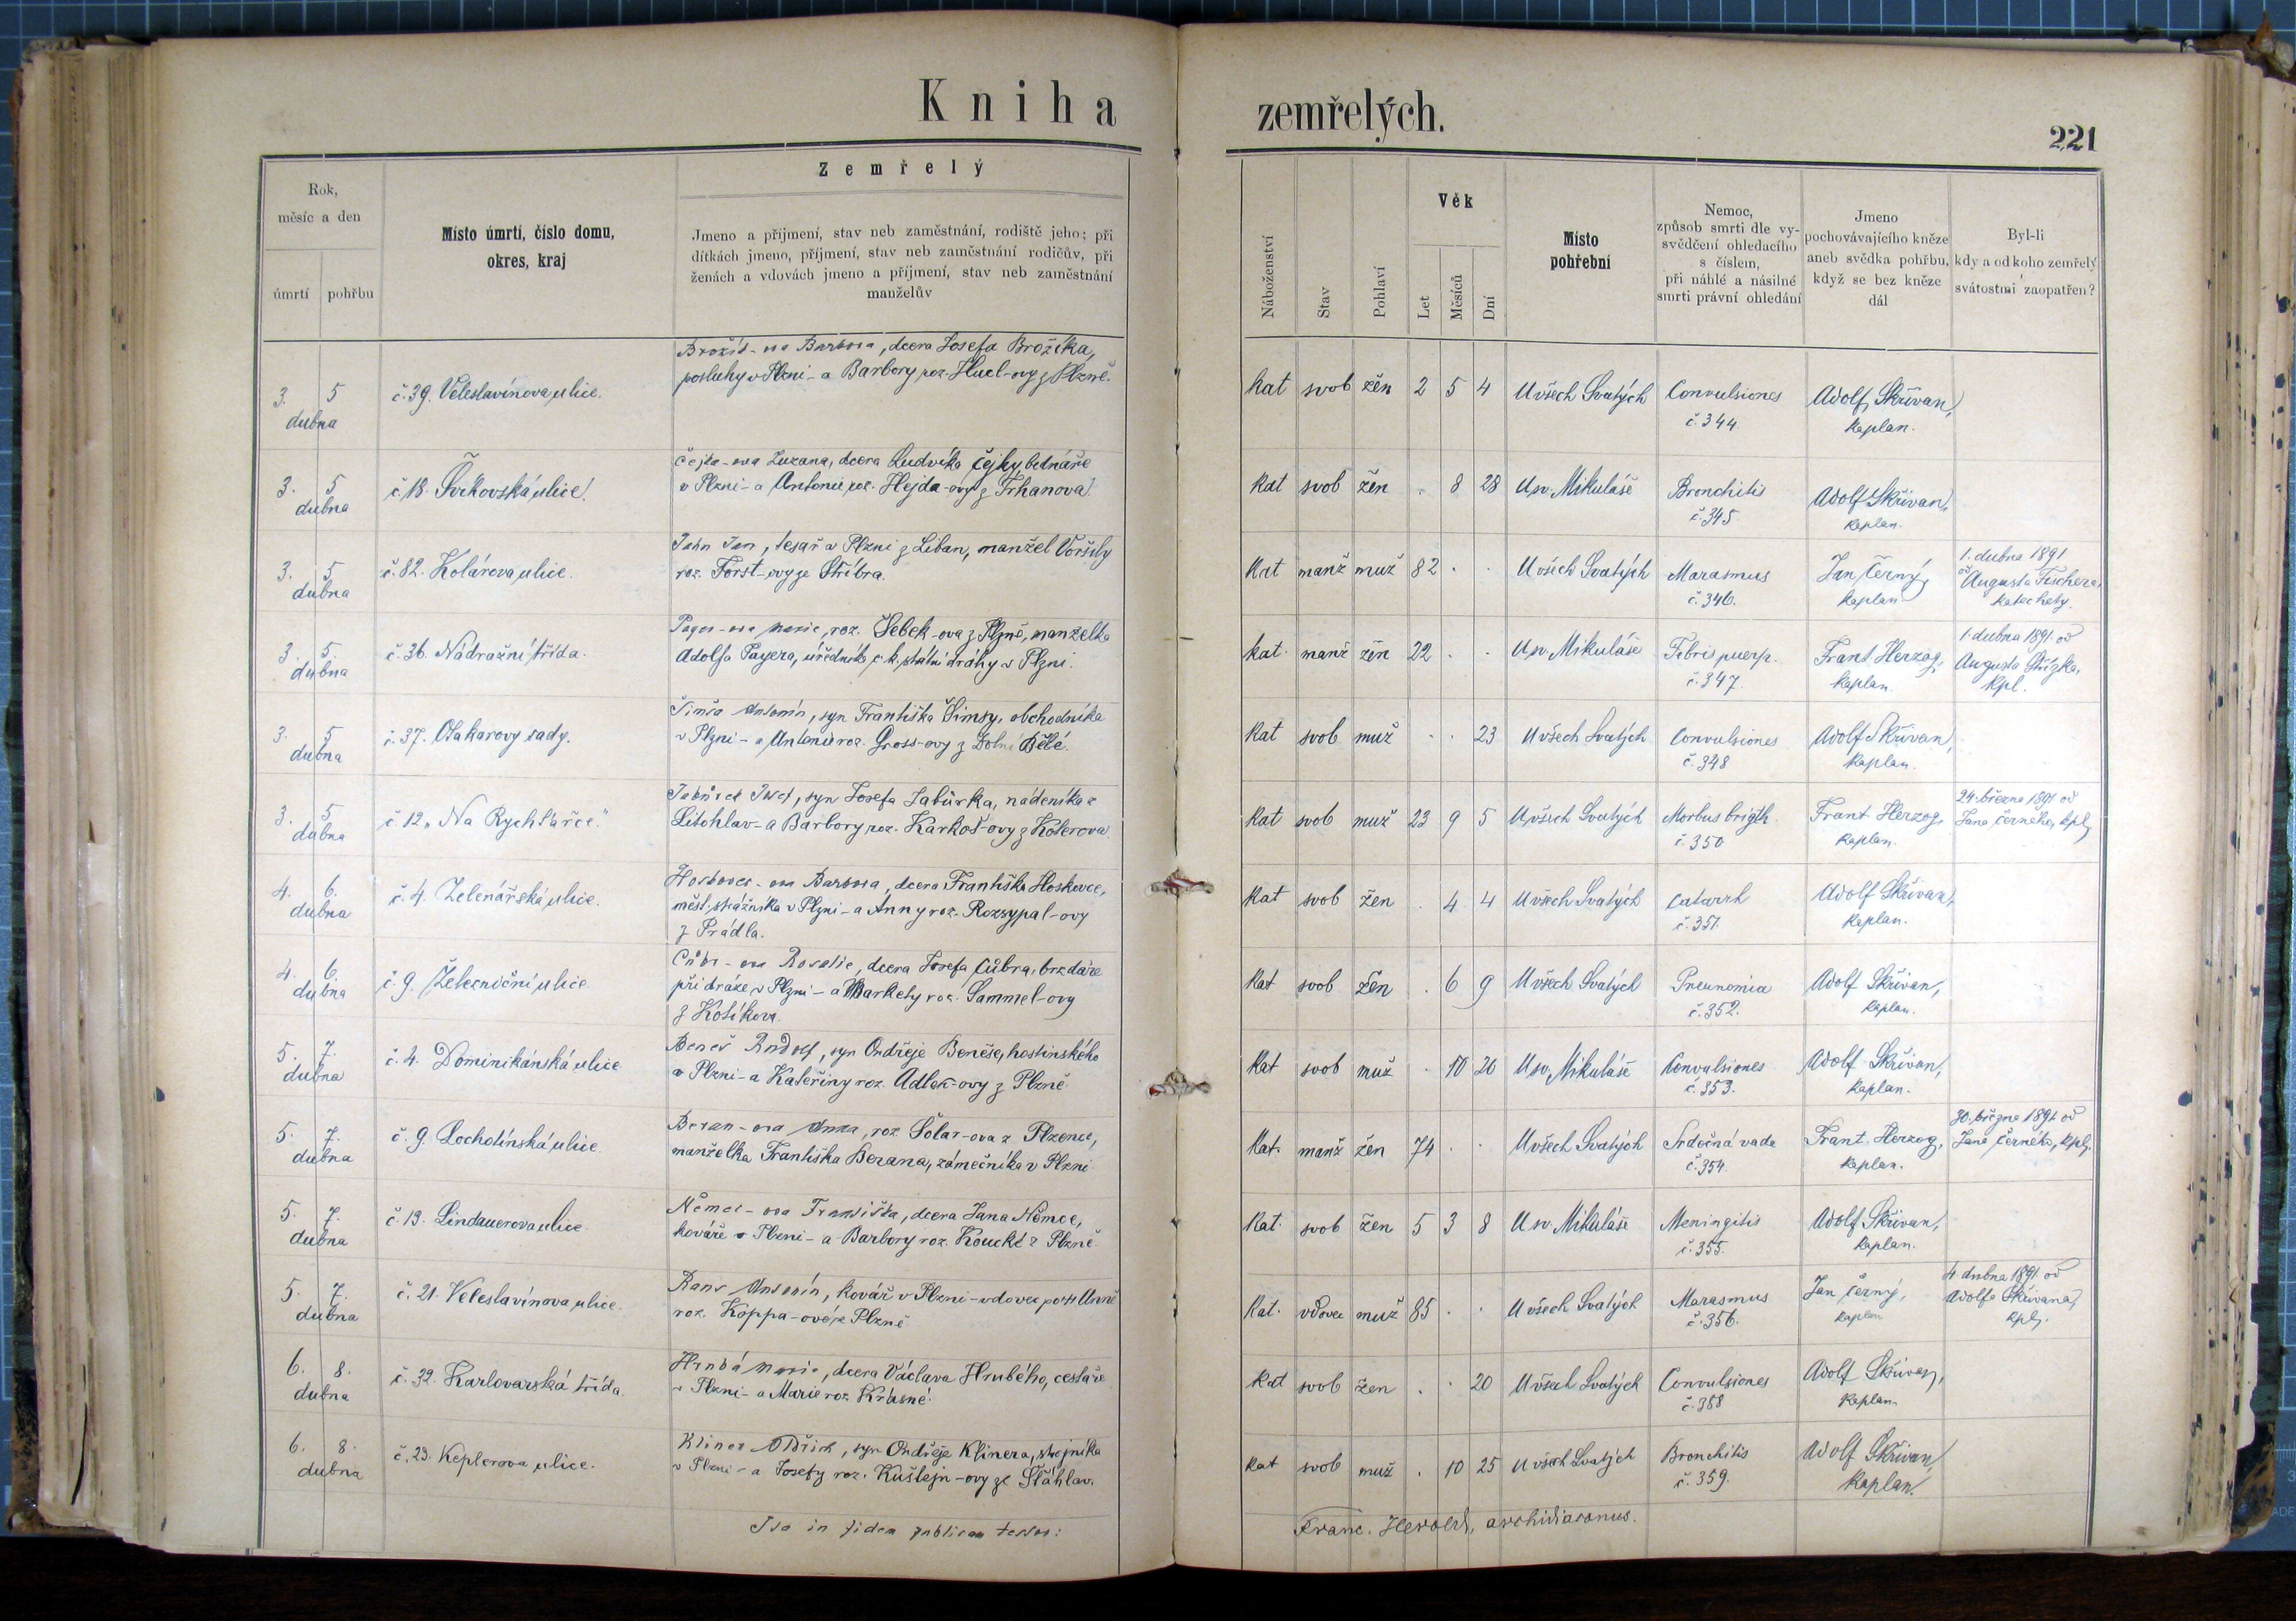 Kniha zemřelých.
221
Rok,
měsíc a den
úmrtí
pohřbu
Místo úmrtí, číslo domu,
okres, kraj
Zemřelý
Jmeno a příjmení, stav neb zaměstnání, rodiště jeho; při
dítkách jmeno, příjmení, stav neb zaměstnání rodičův, při
ženách a vdovách jmeno a příjmení, stav neb zaměstnání
manželův
Náboženství
Stav
Pohlaví
Věk
Let
Měsíců
Dní
Místo
pohřební
Nemoc,
způsob smrti dle vy-
svědčení ohledacího
s číslem,
při náhlé a násilné
smrti právní ohledání
Jmeno
pochovávajícího kněze
aneb svědka pohřbu,
když se bez kněze
dál
Byl-li
kdy a od koho zemřelý
svátostmi zaopatřen?
3. 5
dubna
č. 39. Veleslavínova ulice.
Brožík-ova Barbora, dcera Josefa Brožíka,
posluhy v Plzni - a Barbory roz. Hucl-ovy z Plzně.
kat svob žen 2 5 4 U všech Svatých Convulsiones
č. 344
Adolf Skřivan,
kaplan.
3. 5
dubna
č. 18. ulice.
Čejka-ova Zuzana, dcera Ludvíka Čejky, bednáře
v Plzni - a Antonie roz. Hejda-ovy z Trhanova.
kat svob žen . 8 28 U sv. Mikuláše Bronchitis
č. 345
Adolf Skřivan,
kaplan.
3. 5
dubna
č. 82. Kolárova ulice.
Jahn Jan, tesař v Plzni z Liban, manžel Voršily
roz. Forst-ovy ze Stříbra.
kat manž muž 82 . . U všech Svatých Marasmus
č. 346.
Jan Černý,
kaplan
1. dubna 1891
od Augusta Fischera,
katechety.
3. 5.
dubna
č. 36. Nádražní třída.
Payer-ova Marie, roz. Šebek-ova z Plzně, manželka
Adolfa Payera, úředníka c. k. státní dráhy v Plzni.
kat. manž žen 22 . . U sv. Mikuláše Febris puerp.
č. 347.
Frant. Herzog,
kaplan.
1. dubna 1891 od
Augusta
kpl.
3. 5
dubna
č. 37. Otakarovy sady.
Šimsa Antonín, syn Františka Šimsy, obchodníka
v Plzni - a Antonie roz. Gross-ovy z Dolní Bělé.
kat svob muž . . 23 U všech Svatých Convulsiones
č. 348
Adolf Skřivan,
kaplan.
3. 5
dubna
č. 12 „Na Rychtářce."
Jabůrek Josef, syn Josefa Jabůrka, nádeníka z
Litohlav - a Barbory roz. Karkoš-ovy z Koterova.
kat svob muž 23 9 5 U všech Svatých Morbus brigth.
č. 350
Frant. Herzog,
kaplan.
24. března 1891 od
Jana Černého, kpl.
4. 6.
dubna
č. 4. Zelenářská ulice.
Hoskovec-ova Barbora, dcera Františka Hoskovce,
měst. strážníka v Plzni - a Anny roz. Rozsypal-ovy
z Prádla.
kat svob žen . 4 4 U všech Svatých Catarrh
č. 351.
Adolf Skřivan,
kaplan.
4. 6.
dubna
č. 9. Železniční ulice
Cůbr-ova Rosalie, dcera Josefa Cůbra, brzdaře
při dráze v Plzni - a Markety roz. Sammel-ovy
z Kotíkova.
kat svob žen . 6 9 U všech Svatých Pneumonia
č. 352.
Adolf Skřivan,
kaplan.
5. 7.
dubna
č. 4. Dominikánská ulice
Beneš Rudolf, syn Ondřeje Beneše, hostinského
v Plzni - a Kateřiny roz. Adler-ovy z Plzně.
kat svob muž . 10 20 U sv. Mikuláše Convulsiones
č. 353.
Adolf Skřivan,
kaplan.
5. 7.
dubna
č. 9. Lochotínská ulice.
Beran-ova Anna, roz. Šolar-ova z Plzence,
manželka Františka Berana, zámečníka v Plzni
kat. manž žen 74 . . U všech Svatých Srdečná vada
č. 354.
Frant. Herzog,
kaplan.
30. března 1891 od
Jana Černého, kpl.
5. 7.
dubna
č. 13. Lindauerova ulice
Němec-ova Františka, dcera Jana Němce,
kováře v Plzni - a Barbory roz. Koucké z Plzně.
kat. svob žen 5 3 8 U sv. Mikuláše Meningitis
č. 355.
Adolf Skřivan,
kaplan.
5. 7.
dubna
č. 21. Veleslavínova ulice.
Antonín, kovář v Plzni - vdovec po † Anně
roz. Koppa-ové z Plzně
kat. vdovec muž 85 . . U všech Svatých Marasmus
č. 356.
Jan Černý,
kaplan
4. dubna 1891 od
Adolfa Skřivana,
kpl.
6. 8.
dubna
č. 32. Karlovarská třída.
Hrubá Marie, dcera Václava Hrubého, cestáře
v Plzni - a Marie roz. Krásné.
kat svob žen . . 20 U všech Svatých Convulsiones
č. 358
Adolf Skřivan,
kaplan.
6. 8.
dubna
č. 23. Keplerova ulice.
Kliner Oldřich, syn Ondřeje Klinera, strojníka
v Plzni - a Josefy roz. Kuštejn-ovy ze Šťáhlav.
kat svob muž . 10 25 U všech Svatých Bronchitis
č. 359.
Adolf Skřivan,
kaplan.
Ita in fidem publicam testor:
Franc. Herold, archidiaconus.